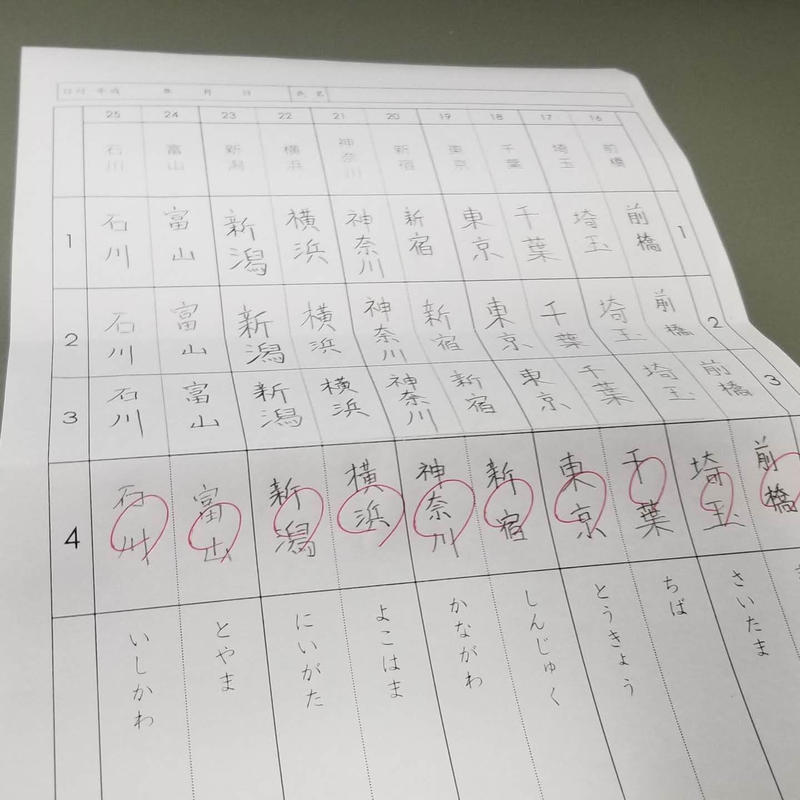 日付 平成 年 月 日 氏名
25 24 23 22 21 20 19 18 17 16
石川 富山 新潟 横浜 神奈川 新宿 東京 千葉 埼玉 前橋
1 石川 富山 新潟 横浜 神奈川 新宿 東京 千葉 埼玉 前橋 1
2 石川 富山 新潟 横浜 神奈川 新宿 東京 千葉 埼玉 前橋 2
3 石川 富山 新潟 横浜 神奈川 新宿 東京 千葉 埼玉 前橋 3
4 石川 富山 新潟 横浜 神奈川 新宿 東京 千葉 埼玉 前橋
いしかわ とやま にいがた よこはま かながわ しんじゅく とうきょう ちば さいたま